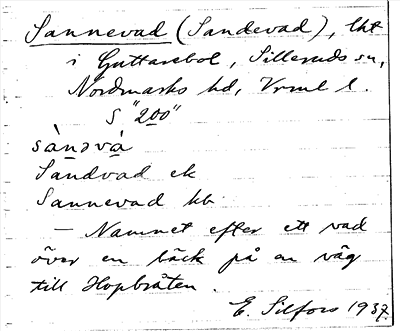 Sannevad (Sandevad), lht
i Guttarebol, Silleruds sn,
Nordmarks hd, Vrml l.
S "200"
sànǝvà
Sandvad ek
Sannevad kb
— Namnet efter ett vad
över en bäck på en väg
till Hopbråten.
E. Silfors 1937.